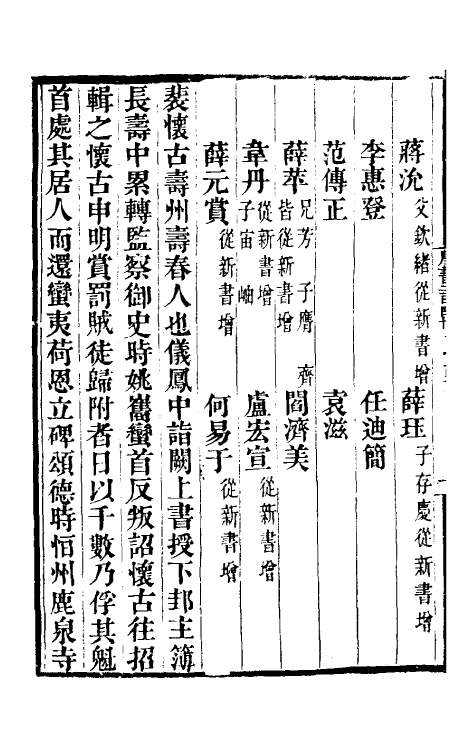 蔣沇 父欽緒從新書增 薛珏 子存慶從新書增
李惠登 任迪簡
范傳正 袁滋
薛苹 兄芳 子膺 齊 皆從新書增 閻濟美
韋丹 從新書增 子宙 岫 盧宏宣 從新書增
薛元賞 從新書增 何易于 從新書增
裴懷古壽州壽春人也儀鳳中詣闕上書授下邽主簿
長壽中累轉監察御史時姚巂蠻首反叛詔懷古往招
輯之懷古申明賞罰賊徒歸附者日以千數乃俘其魁
首處其居人而還蠻夷荷恩立碑頌德時恒州鹿泉寺